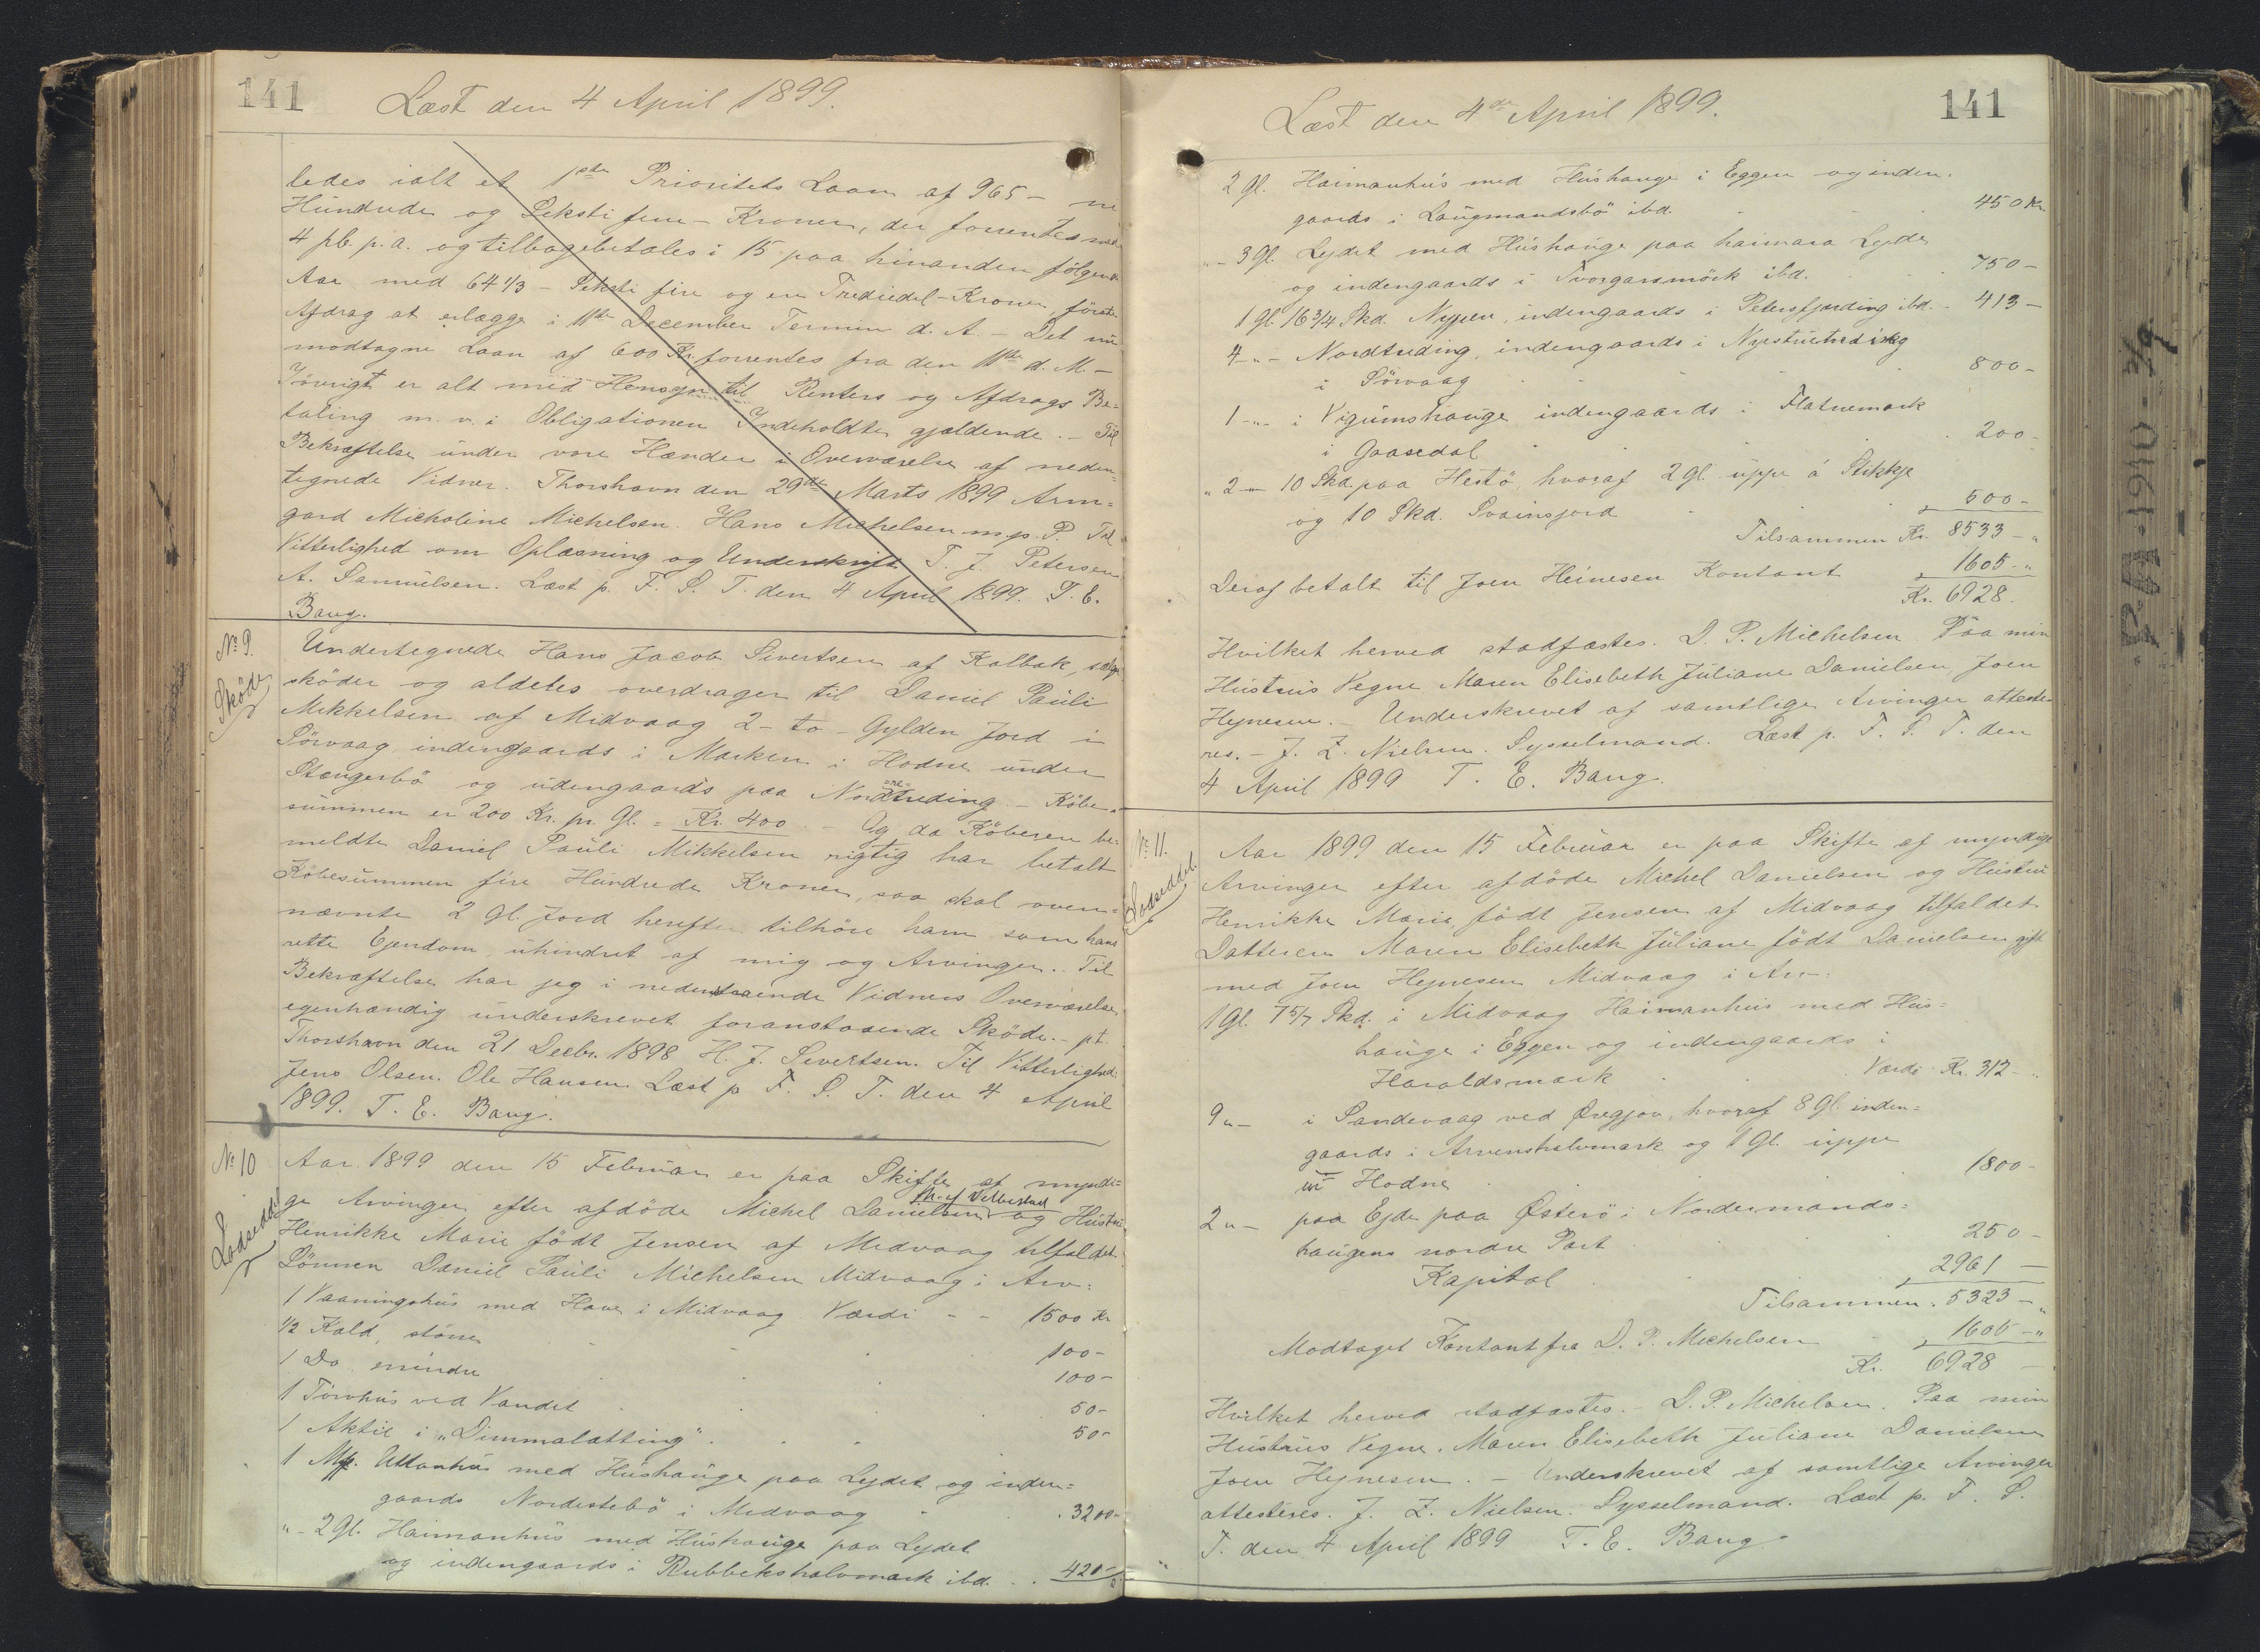 141
Læst den 4 April 1899.
ledes ialt et 1ste Prioritets Laan af 965 - ni
Hundrede og Seksti fem - Kroner, der forrentes med
4 pCt. p. a. og tilbagebetales i 15 paa hinanden følgende
Aar med 64 1/3 - Seksti fire og en Trediedel - Kroner første
Afdrag at erlægge i 11te December Termin d. A. - Det nu
modtagne Laan af 600 Kr. forrentes fra den 11te d. M. -
Iøvrigt er alt med Hensyn til Renters og Afdrags Be=
taling m. v. i Obligationen Indeholdte gjældende. - Til
Bekræftelse under vore Hænder i Overværelse af neden=
tegnede Vidner. Thorshavn den 29de Marts 1899 Arm=
gard Micholine Michelsen. Hans Michelsen m. p. P. Til
Vitterlighed om Oplæsning og Underskrift T. J. Petersen
A. Samuelsen. Læst p. F. S. T. den 4 April 1899. T. E.
Bang.
No 9.
Skøde
Undertegnede Hans Jacob Sivertsen af Kalbak, sælger
skøder og aldeles overdrager til Daniel Pauli
Mikkelsen af Midvaag 2 - to - Gylden Jord i
Sørvaag indengaards i Marken i Hodne under
Stængerbø og udengaards paa Nordtreding - Købe=
summen er 200 Kr. pr. Gl. = Kr. 400 - Og da Køberen be=
meldte Daniel Pauli Mikkelsen rigtig har betalt
Købesummen fire Hundrede Kroner, saa skal oven=
nævnte 2 Gl. Jord herefter tilhøre ham som hans
rette Ejendom uhindret af mig og Arvinger. Til
Bekræftelse har jeg i nedenstaaende Vidners Overværelse
egenhændig underskrevet foranstaaende Skøde. - pt.
Thorshavn den 21 Decbr. 1898 H. J. Sivertsen. Til Vitterlighed:
Jens Olsen. Ole Hansen. Læst p F. S. T. den 4 April
1899. T. E. Bang.
No 10
Lodseddel
Aar 1899 den 15 Februar er paa Skifte af myndi=
ge Arvinger efter afdøde Michel Danielsen og Hustru
Henrikke Marie født Jensen af Midvaag tilfaldet
Sønnen Daniel Pauli Michelsen Midvaag i Arv:
1 Vaaningshus med Have i Midvaag Værdi - - 1500 Kr
1/2 Kald, større 100 -
1 Do mindre 100 -
1 Tørvhus ved Vandet 50 -
1 Aktie i "Dimmalætting" 50 -
1 Mk. Uttanhus med Hushauge paa Lejdet og inden=
gaards Nordestebø i Midvaag 3200 -
" - 2 Gl. Haimanhus med Hushauge paa Lejdet
og indengaards i Rubbekshalvmark ibd. 420 -
Læst den 4de April 1899.
141
2 Gl. Haimanhus med Hushauge i Eggen og inden=
gaards i Laugmandsbø ibd. 450 Kr.
" - 3 Gl. Lejdet med Hushauge paa haimara Lejde
og indengaards i Tvorgarsmörk ibd. 750 -
1 Gl. 16 3/4 Skd. Nypen, indengaards i Petersfjording ibd. - 413 -
4 - " - Nordtreding, indengaards i
i Sørvaag 800 -
1 - " - i Vigumshauge indengaards i Flatnemark
i Gaasedal 200 -
" 2 - " 10 Skd. paa Hestø, hvoraf 2 Gl. uppe á Stikkje
og 10 Skd. Svainsjord 500 -
Tilsammen Kr. 8533 - "
Deraf betalt til Joen Heinesen Kontant 1605 - "
Kr. 6928.
Hvilket herved stadfæstes. D. P. Michelsen Paa min
Hustrus Vegne Maren Elisebeth Juliane Danielsen, Joen
Hejnesen. - Underskrevet af samtlige Arvinger atteste=
res. - J. Z. Nielsen. Sysselmand. Læst p. F. S. T. den
4 April 1899 T. E. Bang.
No 11.
Lodseddel
Aar 1899 den 15 Februar er paa Skifte af myndige
Arvinger efter afdøde Michel Danielsen og Hustru
Henrikke Marie født Jensen af Midvaag tilfaldet
Datteren Maren Elisebeth Juliane født Danielsen gift
med Joen Hejnesen Midvaag i Arv:
1 Gl. 7 5/7 Skd. i Midvaag Haimanhus med Hus=
hauge i Eggen og indengaards i
Haraldsmark Værdi Kr. 312 - "
9 " - i Sandevaag ved Øregjov, hvoraf 8 Gl. inden=
gaards i Arvenshalvmark og 1 Gl. uppe
Hodne 1800 -
2 " - paa Ejde paa Østerø i Nordermands=
haugens nordre Part 250 -
Kapital 2961 -
Tilsammen 5323 - "
Modtaget Kontant fra D. P. Michelsen 1605 - "
Kr. 6928 -
Hvilket herved stadfæstes. - D. P. Michelsen. Paa min
Hustrus Vegne. Maren Elisebeth Juliane Danielsen
Joen Hejnesen. - Underskrevet af samtlige Arvinger
attesteres. J. Z. Nielsen. Sysselmand. Læst p. F. S.
T. den 4 April 1899 T. E. Bang.